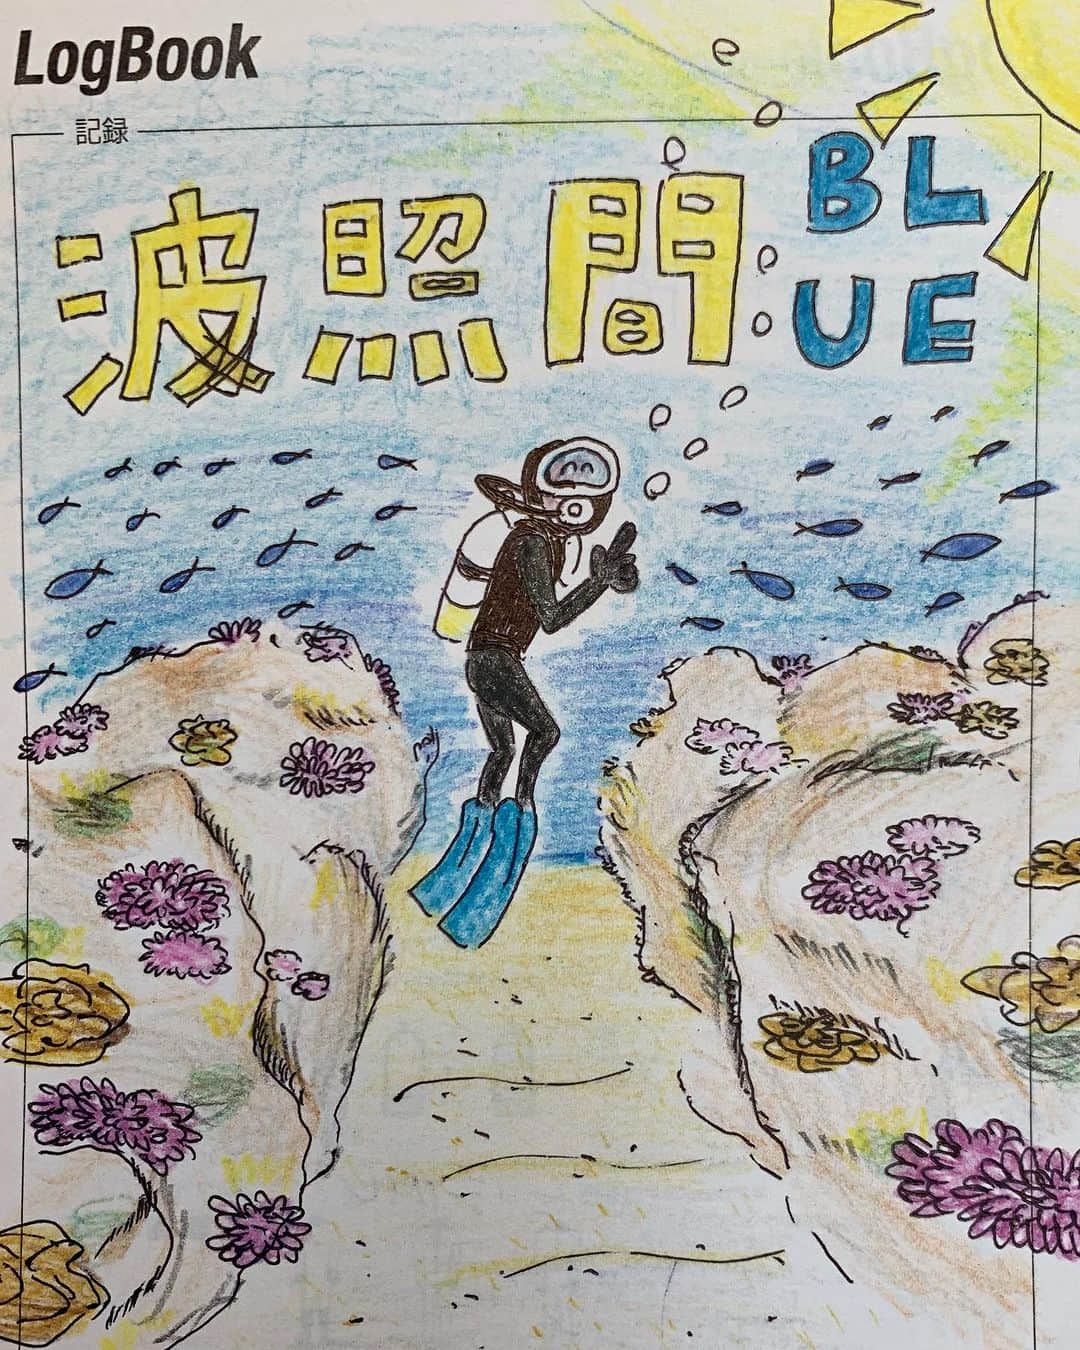 LogBook
記録
波照間 BLUE